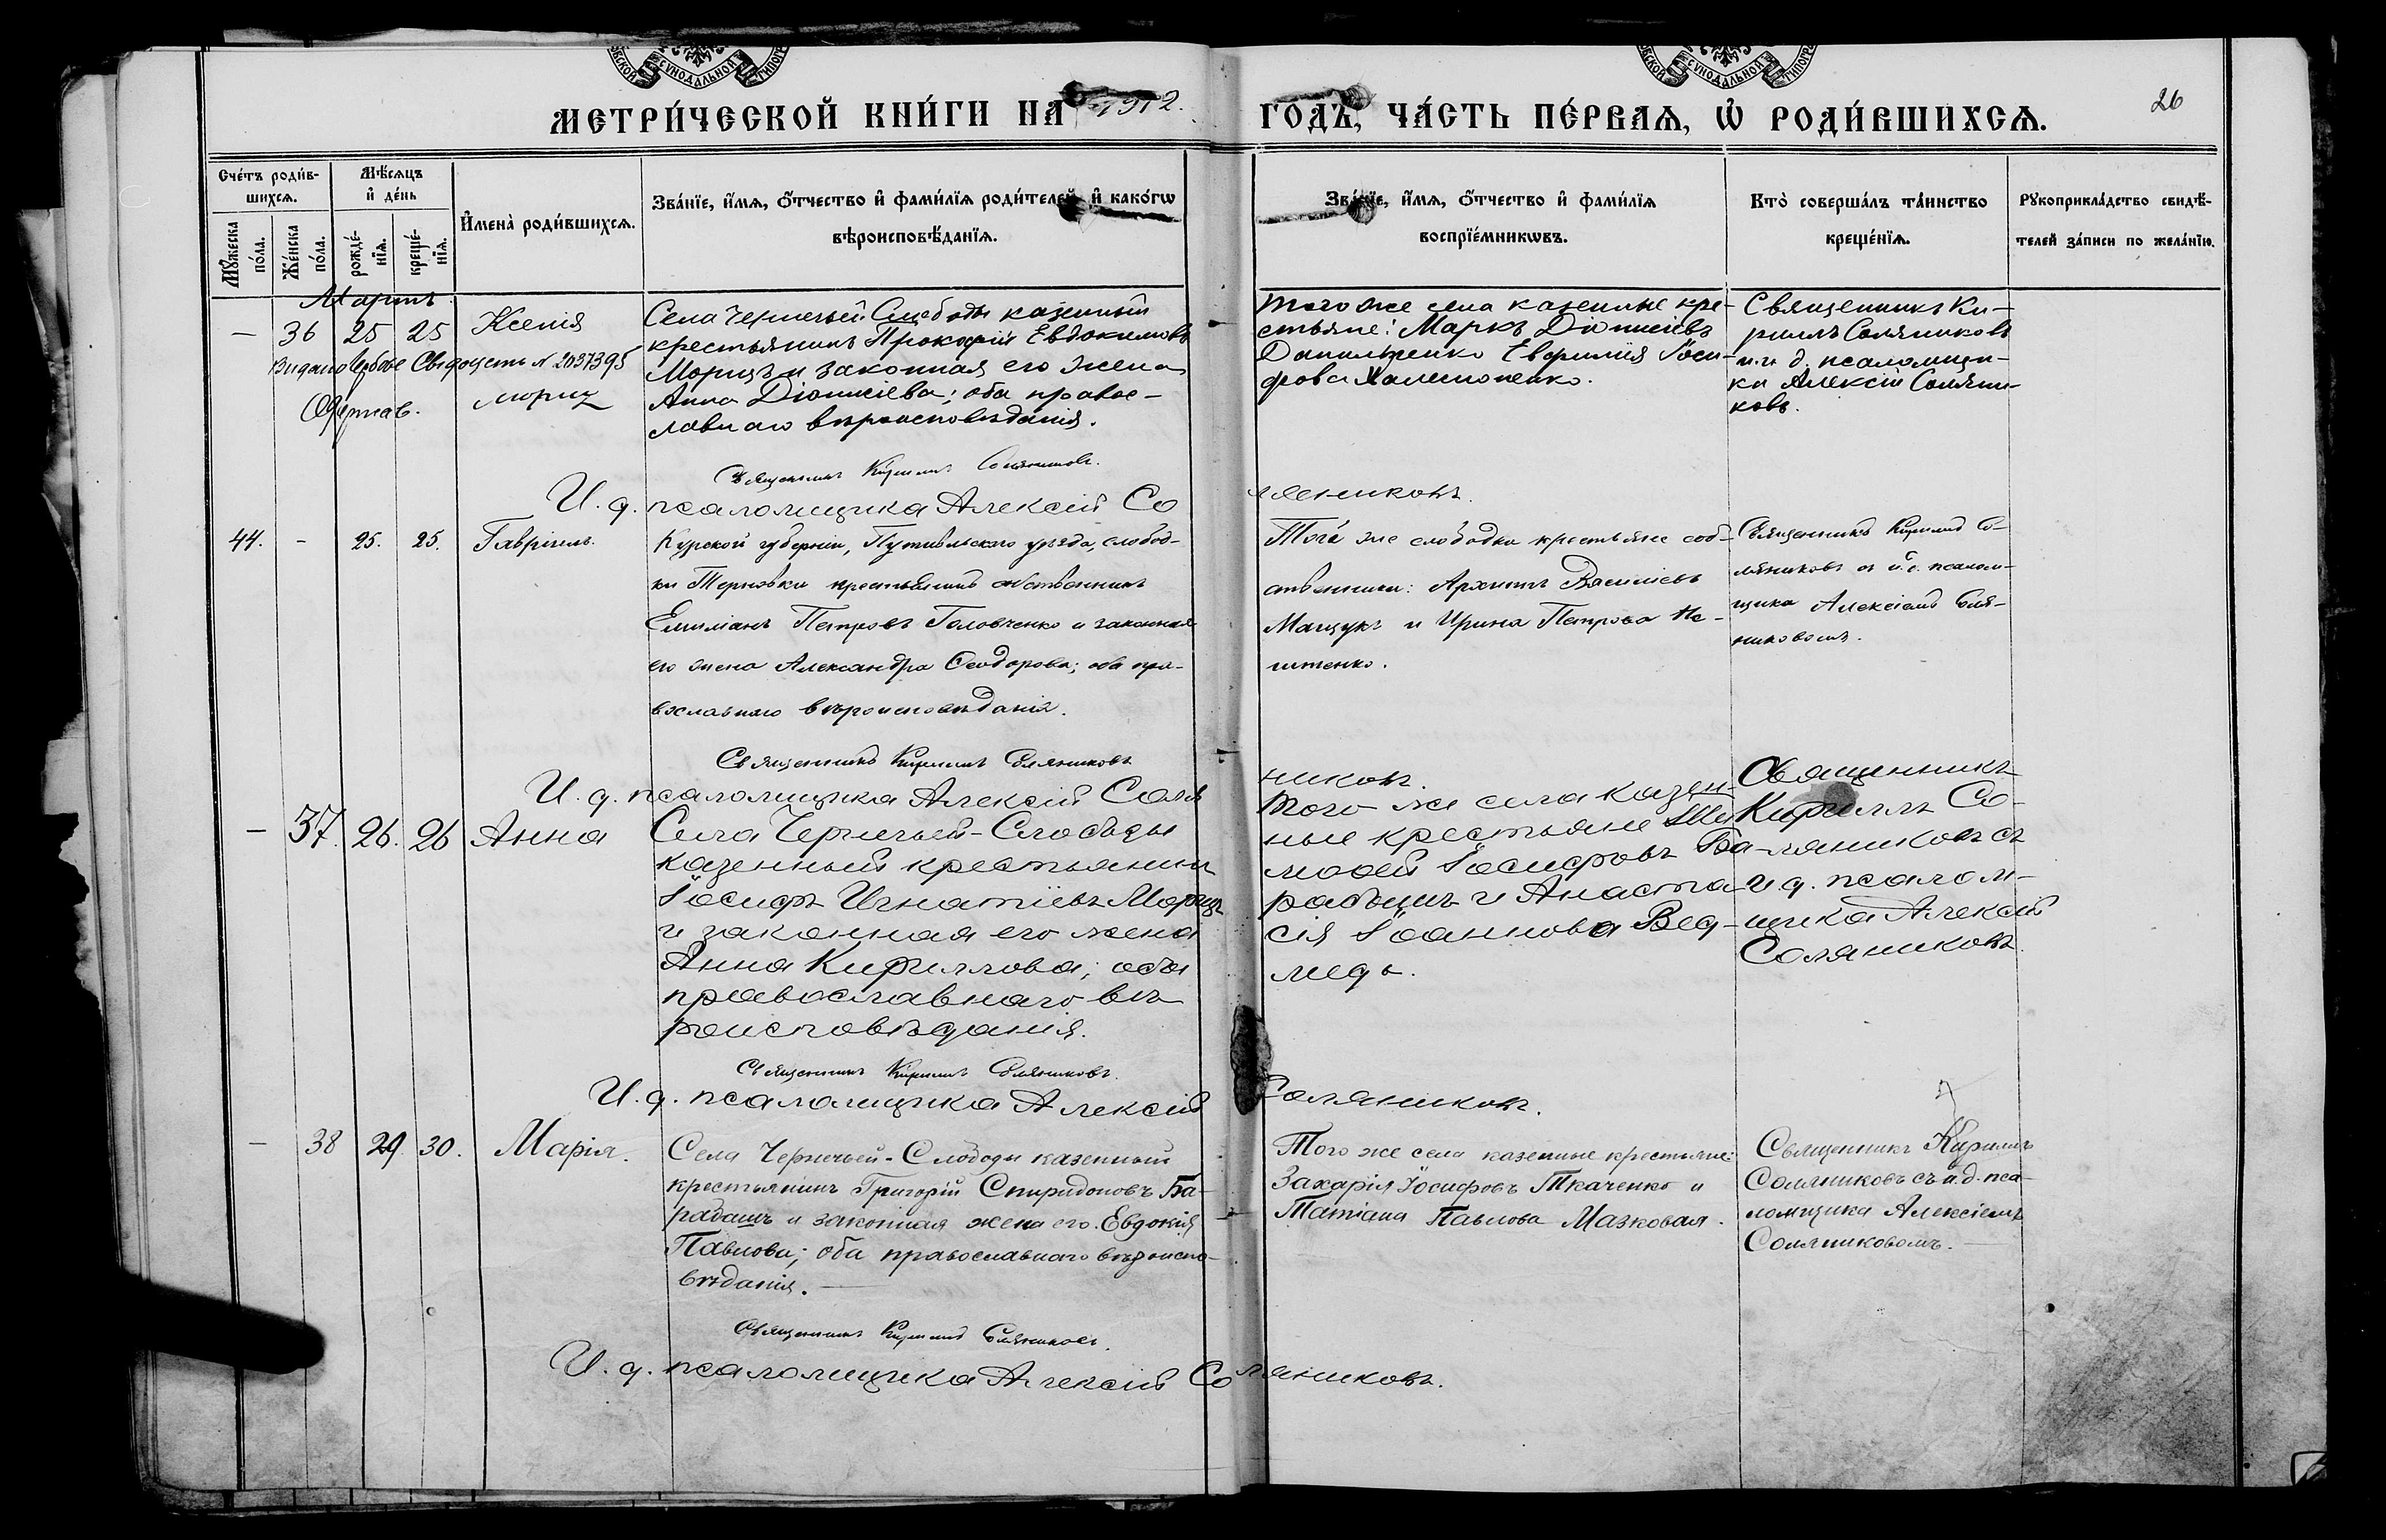 МЕТРИ́ЧЕСКОЙ КНИ́ГИ НА 1912.
ГОДЪ, ЧА́СТЬ ПЕ́РВАѦ, Ѡ РОДИ́ВШИХСѦ.
26
Сче́тъ роди́в-
шихсѧ.
Мѣ́сѧцъ
и҆ де́нь
Мꙋ́жеска по́ла.
Же́нска по́ла.
рожде́-
нїѧ.
креще́-
нїѧ.
И҆мена̀ роди́вшихсѧ.
Зва́нїе, и҆́мѧ, ѻ҆́тчество и҆ фами́лїѧ роди́телей и҆ како́гѡ
вѣроисповѣ́данїѧ.
Зва́нїе, и҆́мѧ, ѻ҆́тчество и҆ фами́лїѧ
воспрїе́мникѡвъ.
Кто̀ соверша́лъ та́инство
креще́нїѧ.
Рꙋкоприкла́дство свидѣ́-
телей за́писи по жела́нїю.
Мартъ.
— 36 25 25 Ксенія
Села Черничьей Слободы казенный
крестьянинъ Прокофій Евдокимовъ
Морицъ и законная его жена
Анна Діонисіева; оба правос-
лавнаго вѣроисповѣданія.
Видано Свідоцтв N 2037395
Мориц
Того же села казенные кре-
стьяне: Маркъ Діонисіевъ
Данильченко Евфимія Іоси-
фова
Священникъ Ки-
риллъ Соляниковъ
и. д. псаломщи-
ка Алексій Соляни-
ковъ.
Священникъ Кириллъ Соляниковъ.
И. д. псаломщика Алексій Соляниковъ.
44. - 25. 25. Гавріилъ.
Курской губерніи, Путивльскаго уѣзда, слобод-
ки Терновки крестьянинъ собственникъ
Емиліанъ Петровъ Головченко и законная
его жена Александра Ѳеодорова; оба пра-
вославнаго вѣроисповѣданія.
Той же слободки крестьяне соб-
ственники: Архиппъ Василіевъ
Мащукъ и Ирина Петрова
Священникъ Кириллъ Со-
ляниковъ и и. д. псалом-
щика Алексіемъ Соля-
никовомъ.
Священникъ Кириллъ Соляниковъ
И. д. псаломщика Алексій Соляниковъ.
— 37. 26. 26 Анна
Села Черничьей-Слободы
казенный крестьянинъ
Іосифъ Игнатіевъ Морицъ
и законная его жена
Анна Кириллова; оба
православнаго вѣ-
роисповѣданія.
Того же села казен-
ные крестьяне Ти-
моѳей Іосифовъ Ба-
рабашъ и Анаста-
сія Іоаннова Вед-
медь.
Священникъ
Кириллъ Со-
ляниковъ съ
и. д. псалом-
щика Алексій
Соляниковъ.
Священникъ Кириллъ Соляниковъ.
И. д. псаломщика Алексій Соляниковъ.
— 38 29 30. Марія.
Села Черничьей-Слободы казенный
крестьянинъ Григорій Спиридоновъ Ба-
рабашъ и законная жена его Евдокія
Павлова; оба православнаго вѣроиспо-
вѣданія.
Того же села казенные крестьяне:
Захарія Іосифовъ Ткаченко и
Татіана Павлова Мазковая.
Священникъ Кириллъ
Соляниковъ съ и. д. пса-
ломщика Алексіемъ
Соляниковомъ.
Священникъ Кириллъ Соляниковъ.
И. д. псаломщика Алексій Соляниковъ.